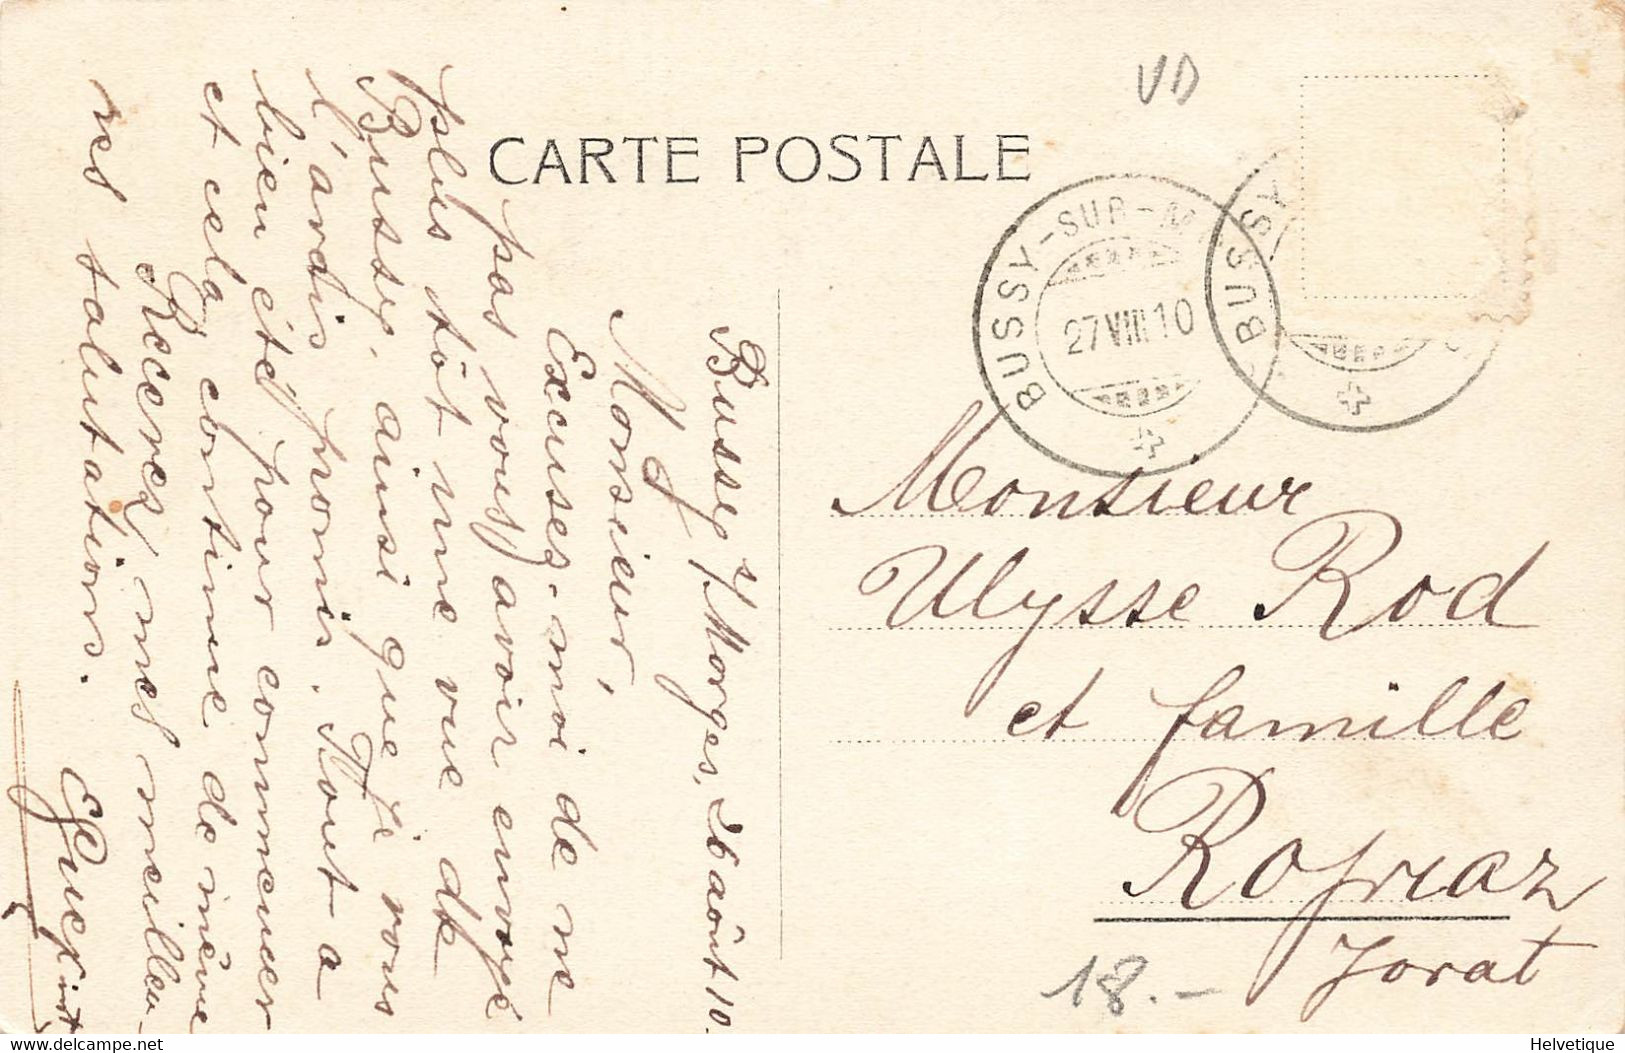 VD
CARTE POSTALE
BUSSY-SUR-M
27 VIII 10
BUSSY
Bussy s/Morges, 26 août 10.
Monsieur,
Excusez-moi de ne
pas vous avoir envoyé
plus tôt une vue de
Bussy, ainsi que je vous
l'avais promis. Tout a
bien été pour commencer
et cela continue de même
Recevez mes meilleu-
res salutations.
EGuex inst
Monsieur
Ulysse Rod
et famille
Ropraz
Jorat
18.-
delcampe.net
Helvetique